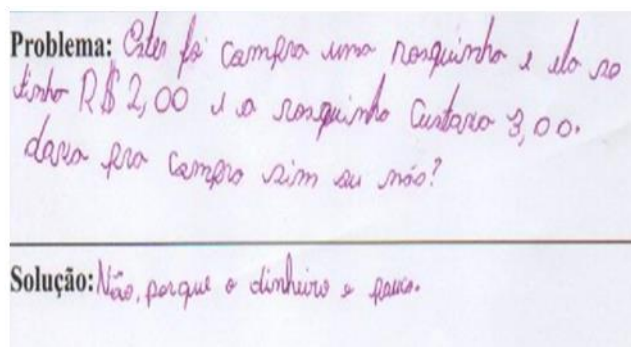 Problema: Ester foi compra uma rosquinha e ela so
tinha R$ 2,00 e a rosquinha Custava 3,00.
dava pra compra sim ou nós?
Solução: Não, porque o dinheiro e pouco.